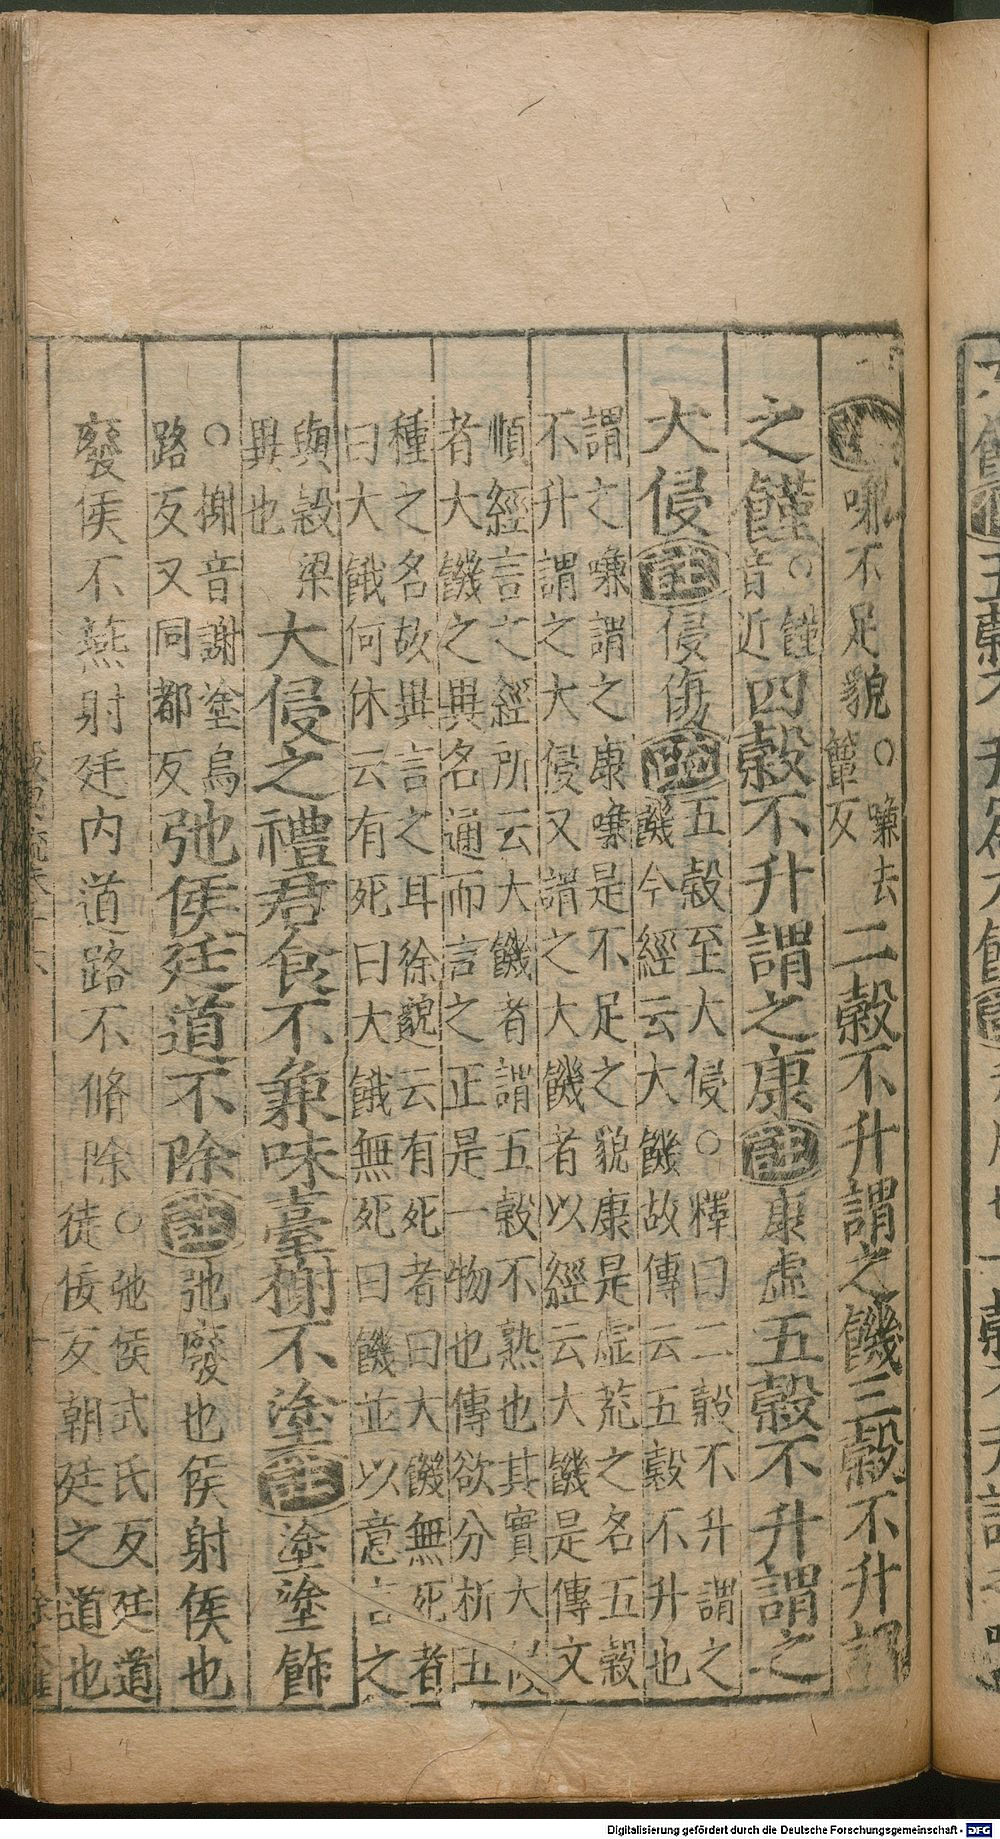 嗛不足貌○嗛去簟反二穀不升謂之饑三穀不升謂
之饉○饉音近四穀不升謂之康註康虛五穀不升謂之
大侵註侵傷疏五穀至大侵○釋曰二穀不升謂之
饑今經云大饑故傳云五穀不升也
謂之嗛謂之康嗛是不足之貌康是虛荒之名五穀
不升謂之大侵又謂之大饑者以經云大饑是傳文
順經言之經所云大饑者謂五穀不熟也其實大侵
者大饑之異名通而言之正是一物也傳欲分析五
種之名故異言之耳徐邈云有死者曰大饑無死者
曰大餓何休云有死曰大餓無死曰饑並以意言之
與穀梁
異也大侵之禮君食不兼味臺榭不塗註塗塗飾
○榭音謝塗烏
路反又同都反弛侯廷道不除註弛廢也侯射侯也
廢侯不燕射廷內道路不脩除○弛侯式氏反廷道
徒佞反朝廷之道也
Digitalisierung gefördert durch die Deutsche Forschungsgemeinschaft - DFG